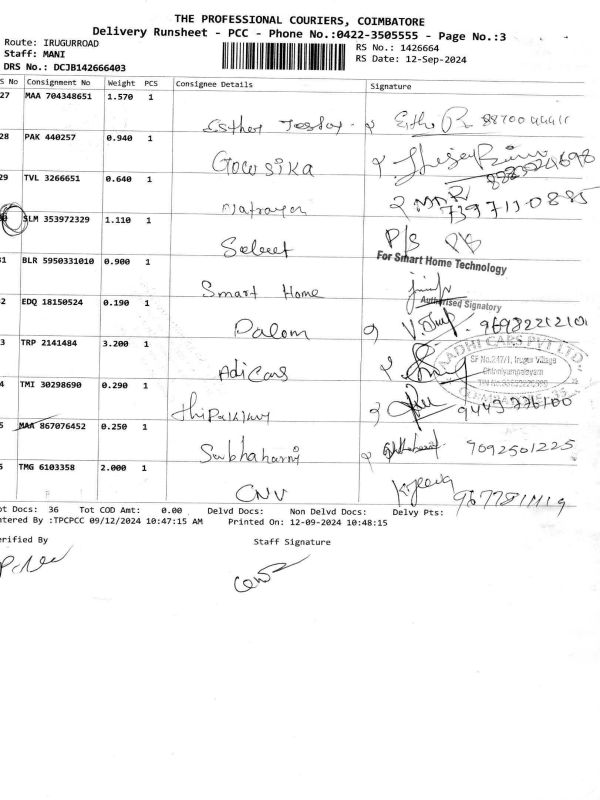 THE PROFESSIONAL COURIERS, COIMBATORE
Delivery Runsheet - PCC - Phone No.:0422-3505555 - Page No.:3
Route: IRUGURROAD
Staff: MANI
DRS No.: DCJB142666403
RS No.: 1426664
RS Date: 12-Sep-2024
S No Consignment No Weight PCS Consignee Details Signature
27 MAA 704348651 1.570 1
Esther
28 PAK 440257 0.940 1
Gowsika
29 TVL 3266651 0.640 1
Natrayan 7397110885
SLM 353972329 1.110 1
Select P/S P/S
For Smart Home Technology
31 BLR 5950331010 0.900 1
Smart Home
Authorised Signatory
2 EDQ 18150524 0.190 1
9698221210
3 TRP 2141484 3.200 1
AADHI CARS PVT LTD
SF No.247/1, Irugur Village
Adi Cars
4 TMI 30298690 0.290 1
5 MAA 867076452 0.250 1
9092501225
5 TMG 6103358 2.000 1
CNV
ot Docs: 36 Tot COD Amt: 0.00 Delvd Docs: Non Delvd Docs: Delvy Pts:
ntered By :TPCPCC 09/12/2024 10:47:15 AM Printed On: 12-09-2024 10:48:15
erified By Staff Signature